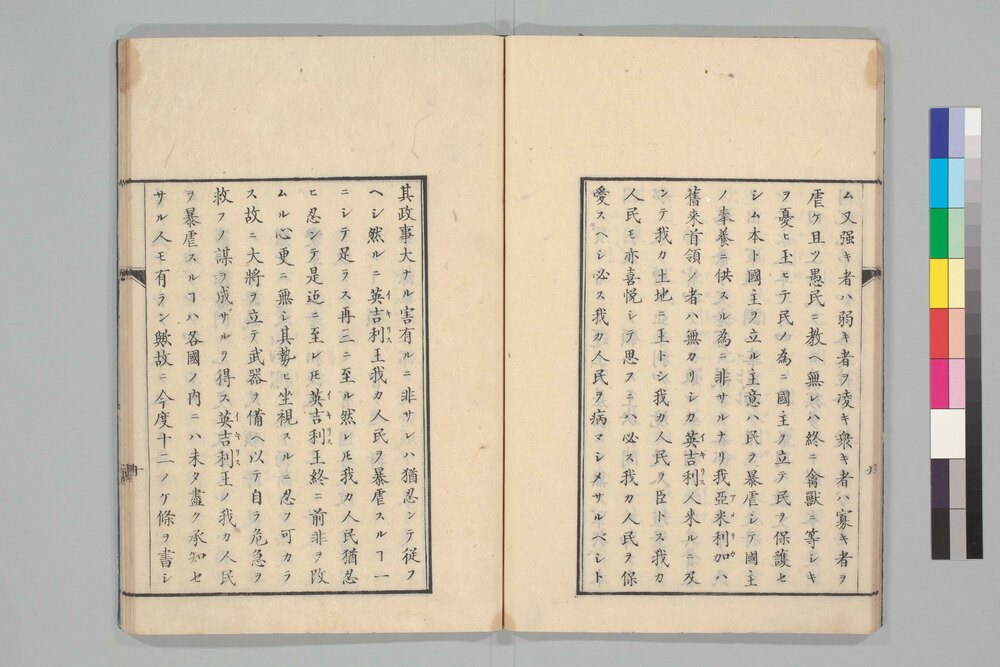 ム又强キ者ハ弱キ者ヲ凌キ衆キ者ハ寡キ者ヲ
虐ケ且ツ愚民ニ教ヘ無レハ終ニ禽獸ニ等シキ
ヲ憂ヒ玉ヒテ民ノ為ニ國主ヲ立テ民ヲ保護セ
シム本ト國主ヲ立ル主意ハ民ヲ暴虐シテ國主
ノ奉養ニ供スル為ニ非サルナリ我亞米利加ハ
舊来首領ノ者ハ無カリシカ英吉利人来ルニ及
ンテ我カ土地ニ王トシ我カ人民ヲ臣トス我カ
人民モ亦喜悦シテ思フニハ必ス我カ人民ヲ保
愛スヘシ必ス我カ人民ヲ病マシメサルベシト
其政事大ナル害有ルニ非サレハ猶忍ンテ従フ
ヘシ然ルニ英吉利王我カ人民ヲ暴虐スルヿ一
ニシテ足ラス再三ニ至ル然レ𪜈我カ人民猶忍
ヒ忍ンテ是迠ニ至レ𪜈英吉利王終ニ前非ヲ改
ムル心更ニ無シ其勢ヒ坐視スルニ忍フ可カラ
ス故ニ大將ヲ立テ武器ヲ備ヘ以テ自ラ危急ヲ
救フノ謀ヲ成サ゛ルヲ得ス英吉利王ノ我カ人民
ヲ暴虐スルヿハ各國ノ内ニハ未タ盡ク承知セ
サル人モ有ラン歟故ニ今度十二ノケ條ヲ書シ